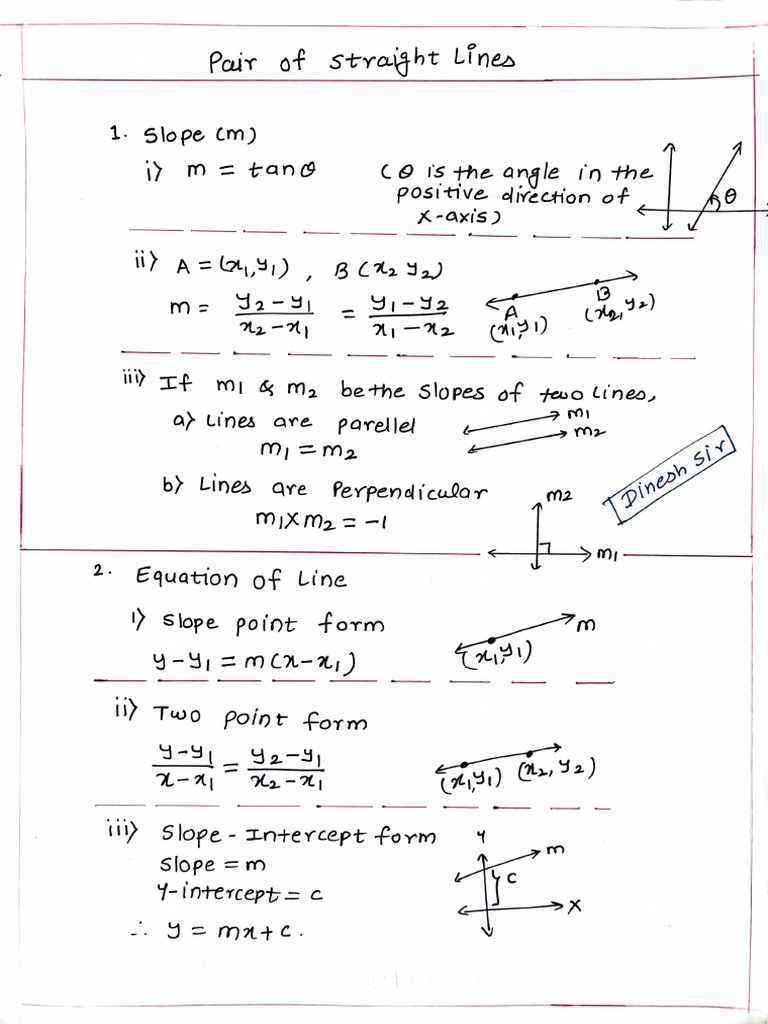 Pair of straight Lines
1. Slope (m)
i) m = tanθ (θ is the angle in the
positive direction of
X-axis)
θ
ii) A = (x₁, y₁) , B (x₂ y₂)
m = (y₂ - y₁)/(x₂ - x₁) = (y₁ - y₂)/(x₁ - x₂)
A
(x₁, y₁)
B
(x₂, y₂)
iii) If m₁ & m₂ be the slopes of two lines,
a) Lines are parellel
m₁
m₂
m₁ = m₂
Dinesh Sir
b) Lines are Perpendicular
m₂
m₁ x m₂ = -1
m₁
2. Equation of Line
i) Slope point form
m
(x₁, y₁)
y - y₁ = m (x - x₁)
ii) Two point form
(y - y₁)/(x - x₁) = (y₂ - y₁)/(x₂ - x₁)
(x₁, y₁) (x₂, y₂)
iii) Slope - Intercept form
Y
m
Slope = m
c
Y-intercept = c
X
∴ y = mx + c.